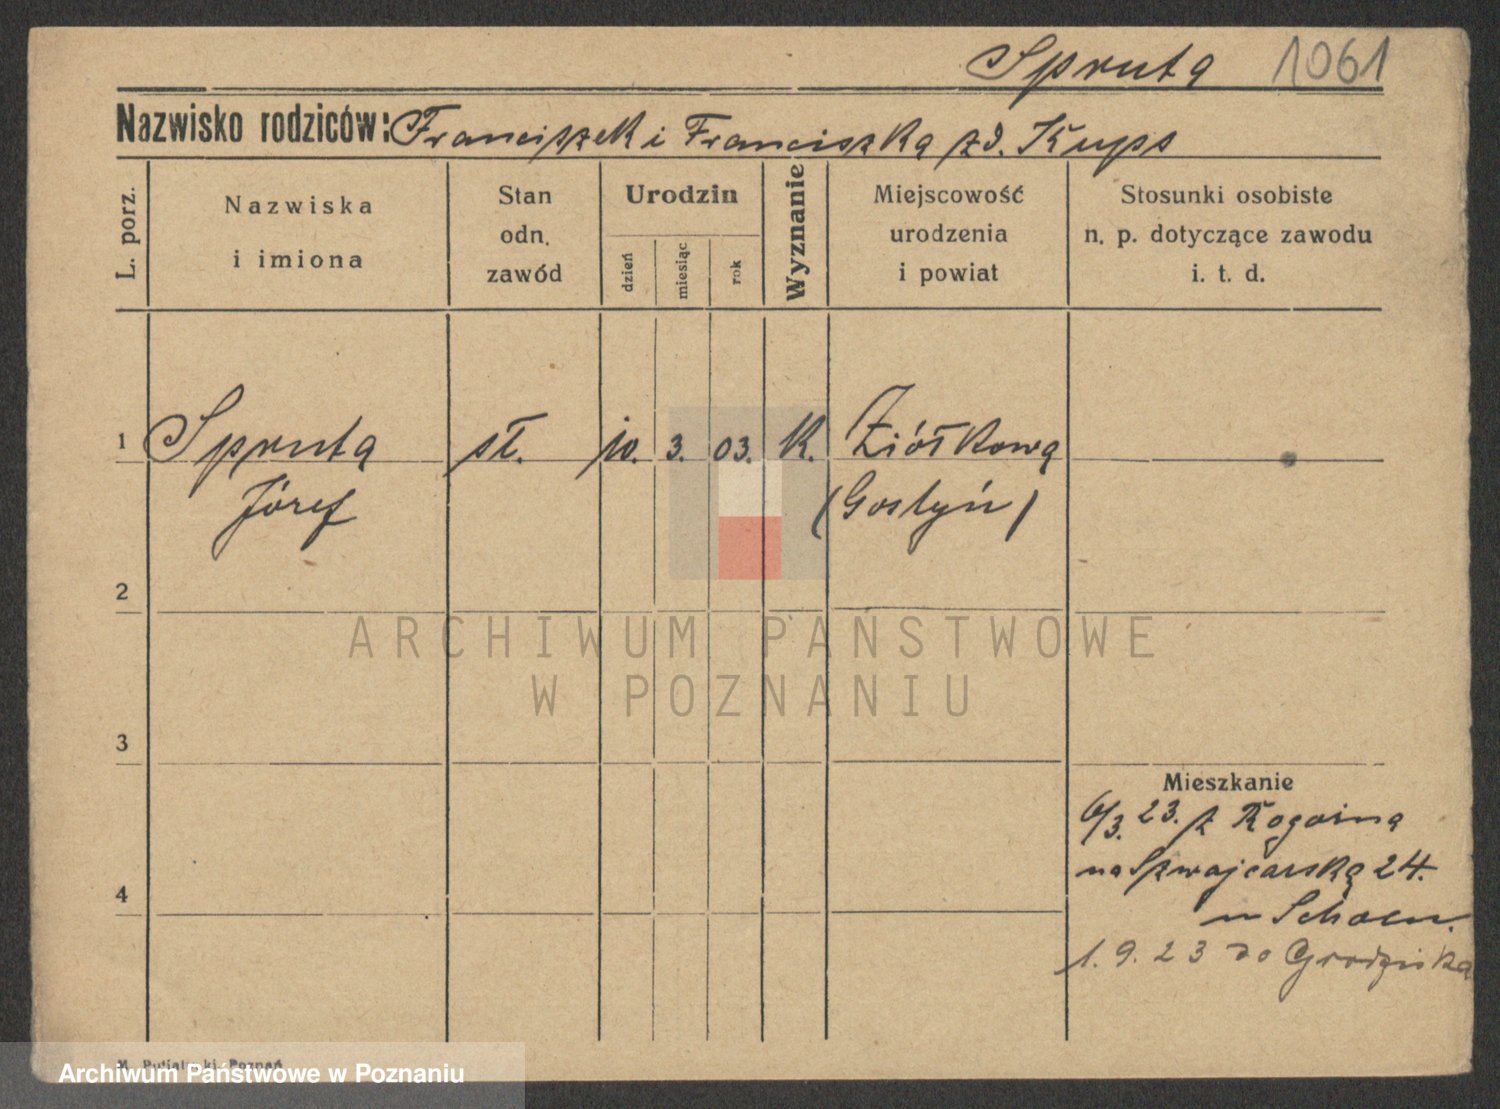 Spruta 1061
Nazwisko rodziców: Franciszek i Franciszka zd. Kups
L. porz.
Nazwiska
i imiona
Stan
odn.
zawód
Urodzin
dzień
miesiąc
rok
Wyznanie
Miejscowość
urodzenia
i powiat
Stosunki osobiste
n. p. dotyczące zawodu
i. t. d.
1 Spruta st. 10. 3. 03. k. Ziółkowa
Józef (Gostyń)
2
ARCHIWUM PAŃSTWOWE
W POZNANIU
3
Mieszkanie
6/3. 23. z
na Szwajcarską 24.
4
1. 9. 23 do Grodziska
Poznań
Archiwum Państwowe w Poznaniu